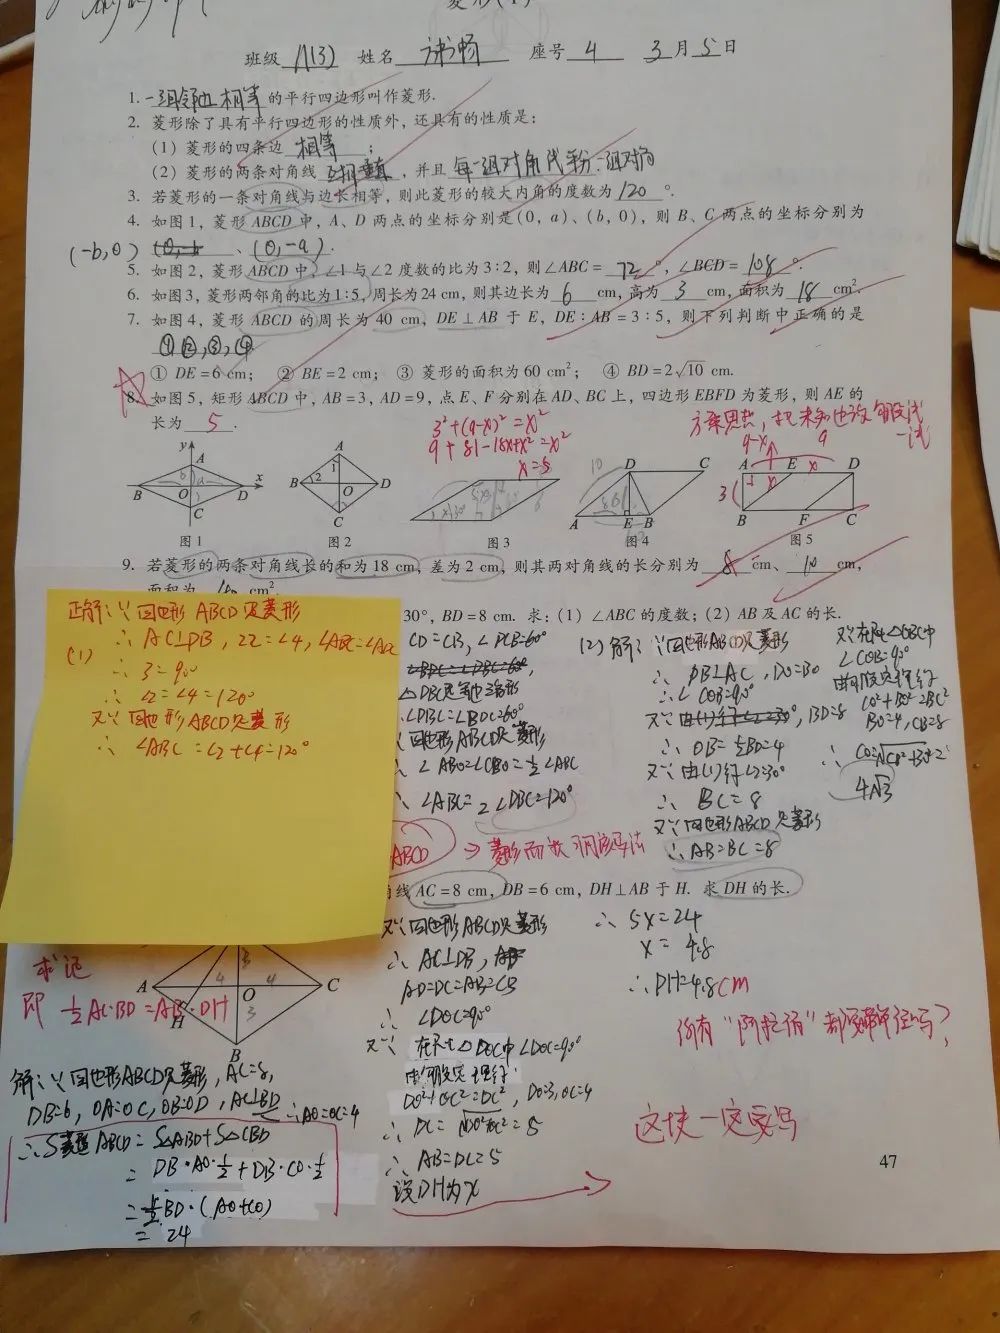 菱形(1)
班级 八(3) 姓名 座号 4 3月5日
1. 一组邻边相等 的平行四边形叫作菱形.
2. 菱形除了具有平行四边形的性质外，还具有的性质是：
(1) 菱形的四条边 相等 ；
(2) 菱形的两条对角线 互相垂直 ，并且 每一组对角线平分一组对角
3. 若菱形的一条对角线与边长相等，则此菱形的较大内角的度数为 120 °.
4. 如图 1，菱形 ABCD 中，A、D 两点的坐标分别是(0，a)、(b，0)，则 B、C 两点的坐标分别为
(-b,0) 、(0,-a).
5. 如图 2，菱形 ABCD 中，∠1 与∠2 度数的比为 3∶2，则∠ABC = 72 °，∠BCD = 108 °.
6. 如图 3，菱形两邻角的比为 1∶5，周长为 24 cm，则其边长为 6 cm，高为 3 cm，面积为 18 cm².
7. 如图 4，菱形 ABCD 的周长为 40 cm，DE⊥AB 于 E，DE∶AB = 3∶5，则下列判断中正确的是
①②,③,④
① DE = 6 cm； ② BE = 2 cm； ③ 菱形的面积为 60 cm²； ④ BD = 2√10 cm.
8. 如图 5，矩形 ABCD 中，AB = 3，AD = 9，点 E、F 分别在 AD、BC 上，四边形 EBFD 为菱形，则 AE 的
长为 5 .
3²+(9-x)²=x²
9+81-18x+x²=x²
x=5
方程思想，把未知边放勾股试一试
9-x 9
y A x B O D C
图 1
A 1 B 2 O D C
图 2
图 3
10 D C A E B
图 4
A E x D 3 B F C
图 5
9. 若菱形的两条对角线长的和为 18 cm，差为 2 cm，则其两对角线的长分别为 8 cm、 10 cm，
面积为 40 cm².
30°，BD = 8 cm. 求：(1) ∠ABC 的度数；(2) AB 及 AC 的长.
正解：∵四边形ABCD是菱形
∴AC⊥DB，∠2=∠4，∠ABC=∠ADC
(1)
∴3=90°
∴∠2=∠4=120°
又∵四边形ABCD是菱形
∴∠ABC=∠2+∠4=120°
CD=CB，∠DCB=60°
△DBC是等边三角形
∠DBC=∠BDC=60°
四边形ABCD是菱形
∴∠ABO=∠CBO=½∠ABC
∴∠ABC=2∠DBC=120°
(2)解：∵四边形ABCD是菱形
∴DB⊥AC，DO=BO
∴∠COB=90°
又∵ BD=8
∴OB=½BD=4
又∵由(1)得∠2=30°
∴BC=8
又∵四边形ABCD是菱形
∴AB=BC=8
又∵在Rt△OBC中
∠COB=90°
由勾股定理得
CO²+BO²=BC²
BO=4,CB=8
4√3
ABCD
角线 AC = 8 cm，DB = 6 cm，DH⊥AB 于 H. 求 DH 的长.
A 4 O 4 C H 3 3 B
求证
即 ½AC·BD=AB·DH
解：∵四边形ABCD是菱形，AC=8，
DB=6，OA=OC，OB=OD，AC⊥BD ∴AO=OC=4
∴S菱形ABCD=S△ABD+S△CBD
=DB·AO·½+DB·CO·½
=½BD·(AO+CO)
=24
又∵四边形ABCD是菱形
∴AC⊥DB，
AD=DC=AB=CB
∴∠DOC=90°
又∵在Rt△DOC中∠DOC=90°
由勾股定理得
DO²+OC²=DC²，DO=3,OC=4
∴DC=√DO²+OC²=5
∴AB=DC=5
设DH为x
∴5x=24
x=4.8
∴DH=4.8CM
这块一定要写
47